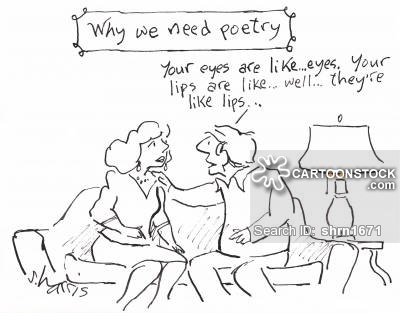 Why we need poetry
Your eyes are like...eyes. Your
lips are like... well... they're
like lips...
CARTOONSTOCK
.com
Search ID: shrn1671
S.Harris